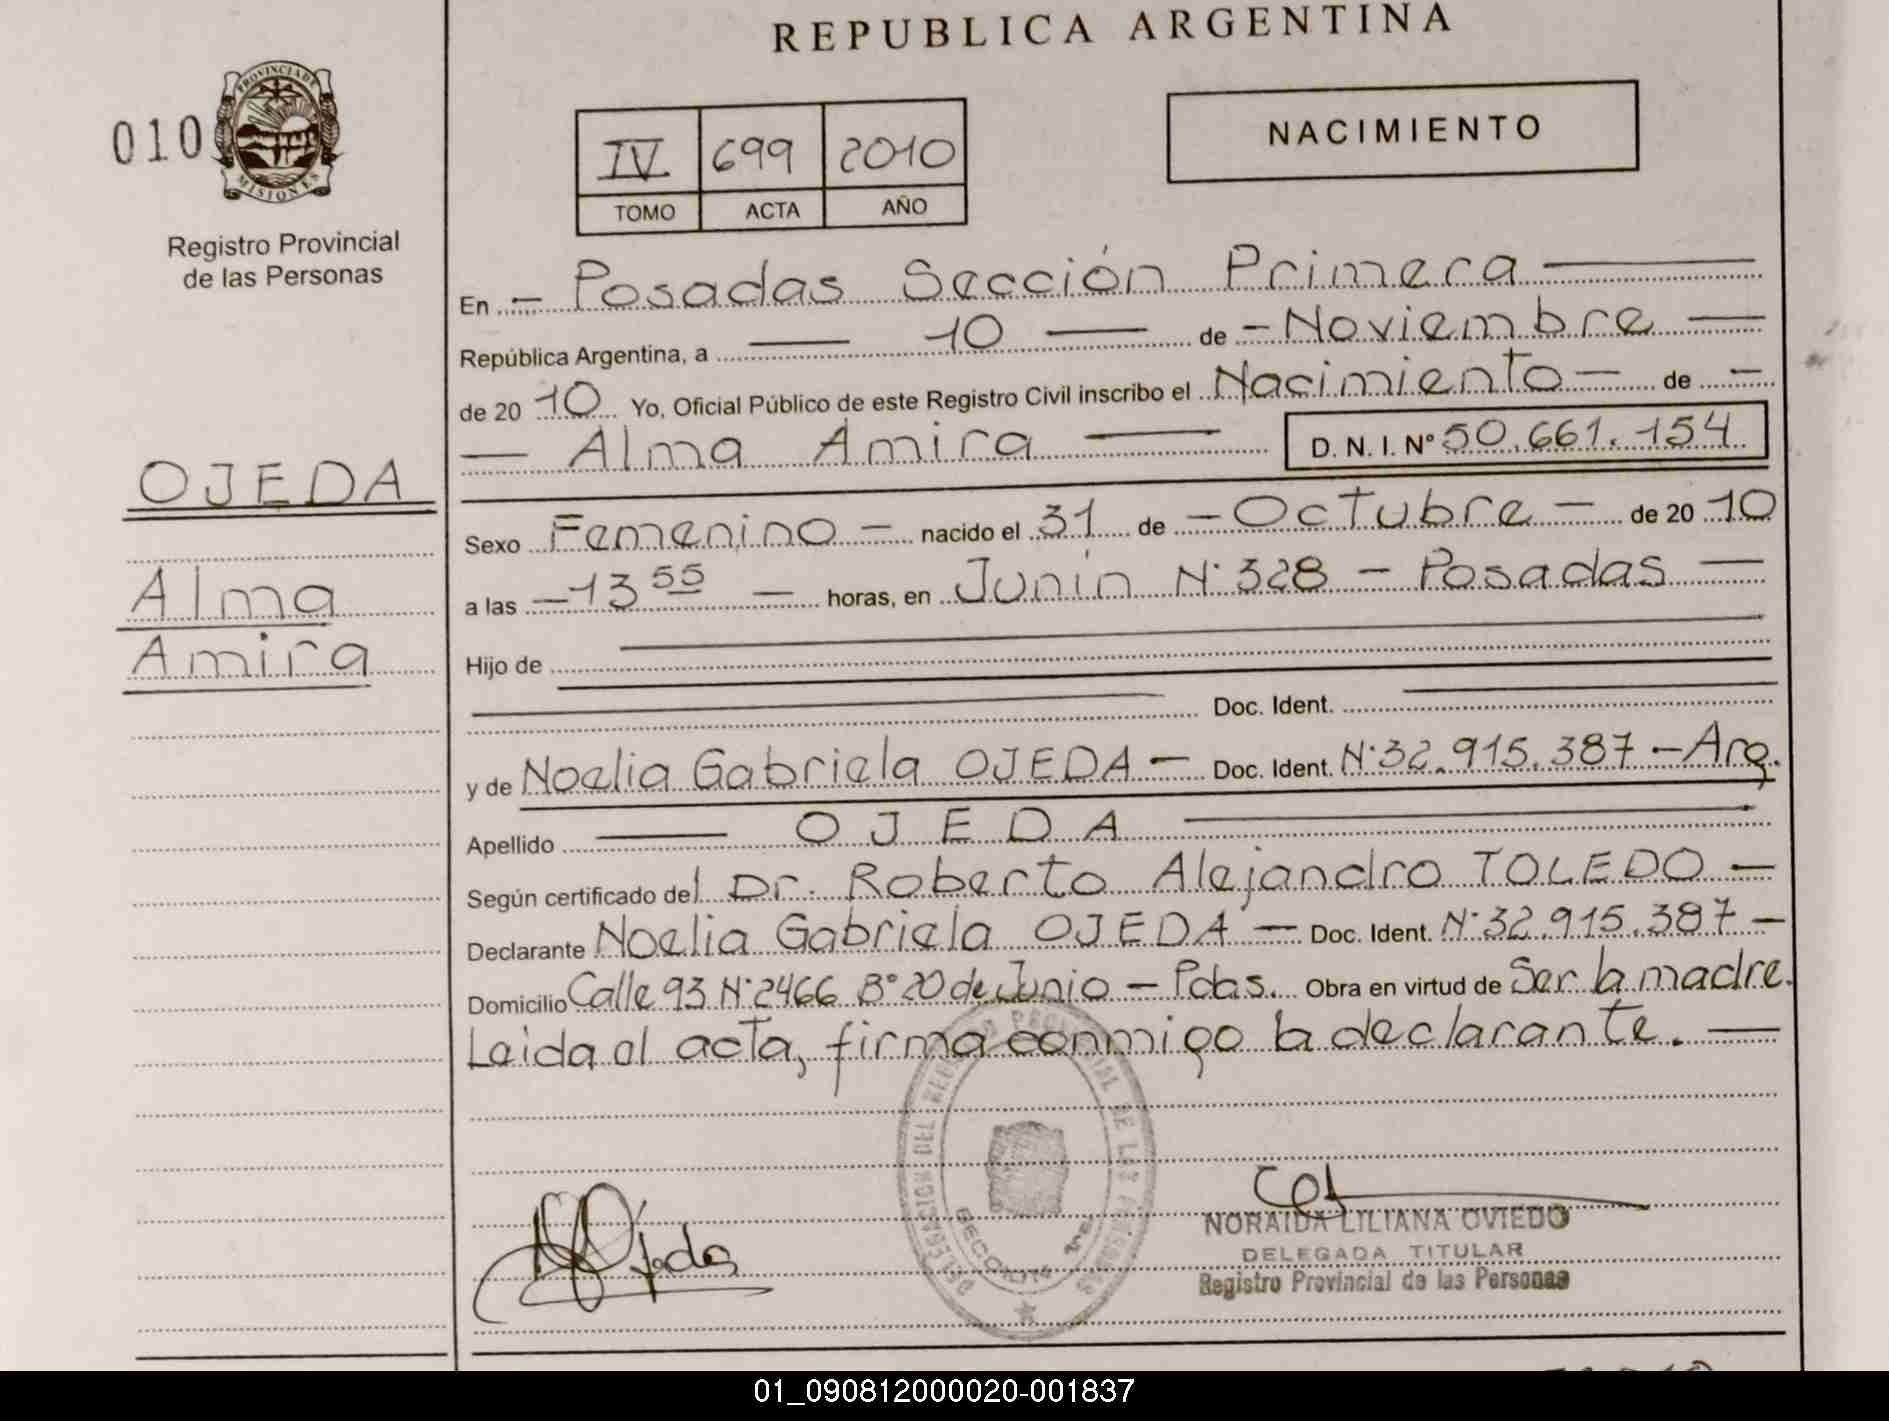 REPUBLICA ARGENTINA
010
PROVINCIA DE
MISIONES
Registro Provincial
de las Personas
IV 699 2010
TOMO ACTA AÑO
NACIMIENTO
En - Posadas Sección Primera
República Argentina, a 10 de - Noviembre
de 20 10 Yo, Oficial Público de este Registro Civil inscribo el Nacimiento - de -
Alma Amira D. N. I. Nº 50.661.154
OJEDA
Alma
Amira
Sexo Femenino - nacido el 31 de - Octubre - de 20 10
a las - 13 55 - horas, en Junín Nº 328 - Posadas
Hijo de
Doc. Ident.
y de Noelia Gabriela OJEDA - Doc. Ident. Nº 32.915.387 - Arg.
Apellido OJEDA
Según certificado del Dr. Roberto Alejandro TOLEDO -
Declarante Noelia Gabriela OJEDA - Doc. Ident. Nº 32.915.387 -
Domicilio Calle 93 Nº 2466 Bº 20 de Junio - Pdas. Obra en virtud de Ser la madre.
Leida el acta, firma conmigo la declarante.
DELEGACION DEL REGISTRO PROVINCIAL DE LAS PERSONAS
SECCION 1ra
Ojeda
NORAIDA LILIANA OVIEDO
DELEGADA TITULAR
Registro Provincial de las Personas
01_090812000020-001837